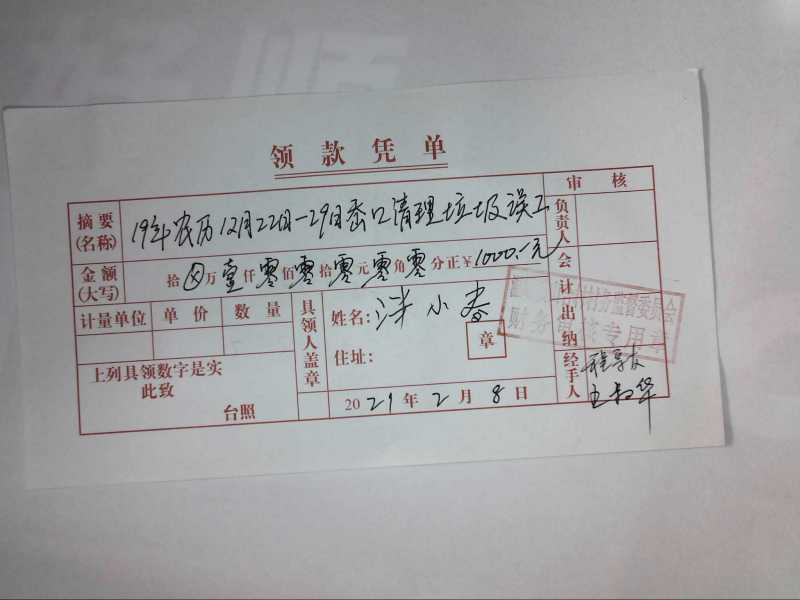 领款凭单
摘要(名称) 19年农历12月22日-29日岙口清理垃圾误工
审核
负责人
金额(大写) 拾⊗万壹仟零佰零拾零元零角零分正¥1000.-元
会计
计量单位 单价 数量
具领人盖章
姓名: 小春
住址:
章
出纳
财务监督委员会
财务审核专用章
上列具领数字是实
此致
台照
2021年2月8日
经手人
华